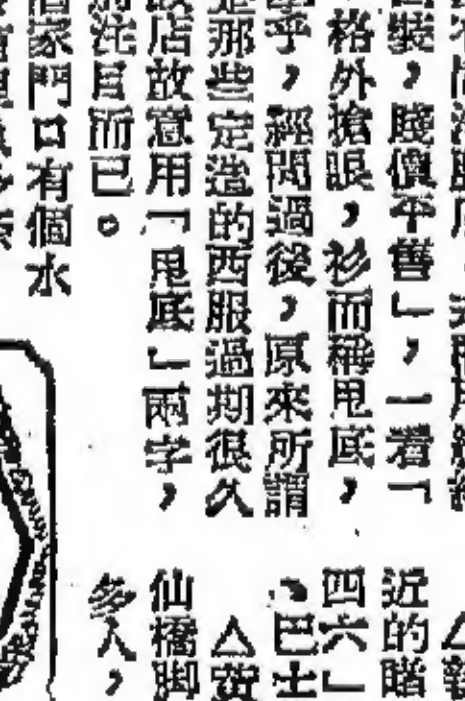 裝，賤價平售」，一看「
格外搶眼，衫而稱甩底，
乎，經問過後，原來所謂
那些定造的西服過期很久
店故意用「甩底」兩字，
注目而已。
家門口有個水
近的睹
四六」
、巴士
△黃
仙橋脚
多人，